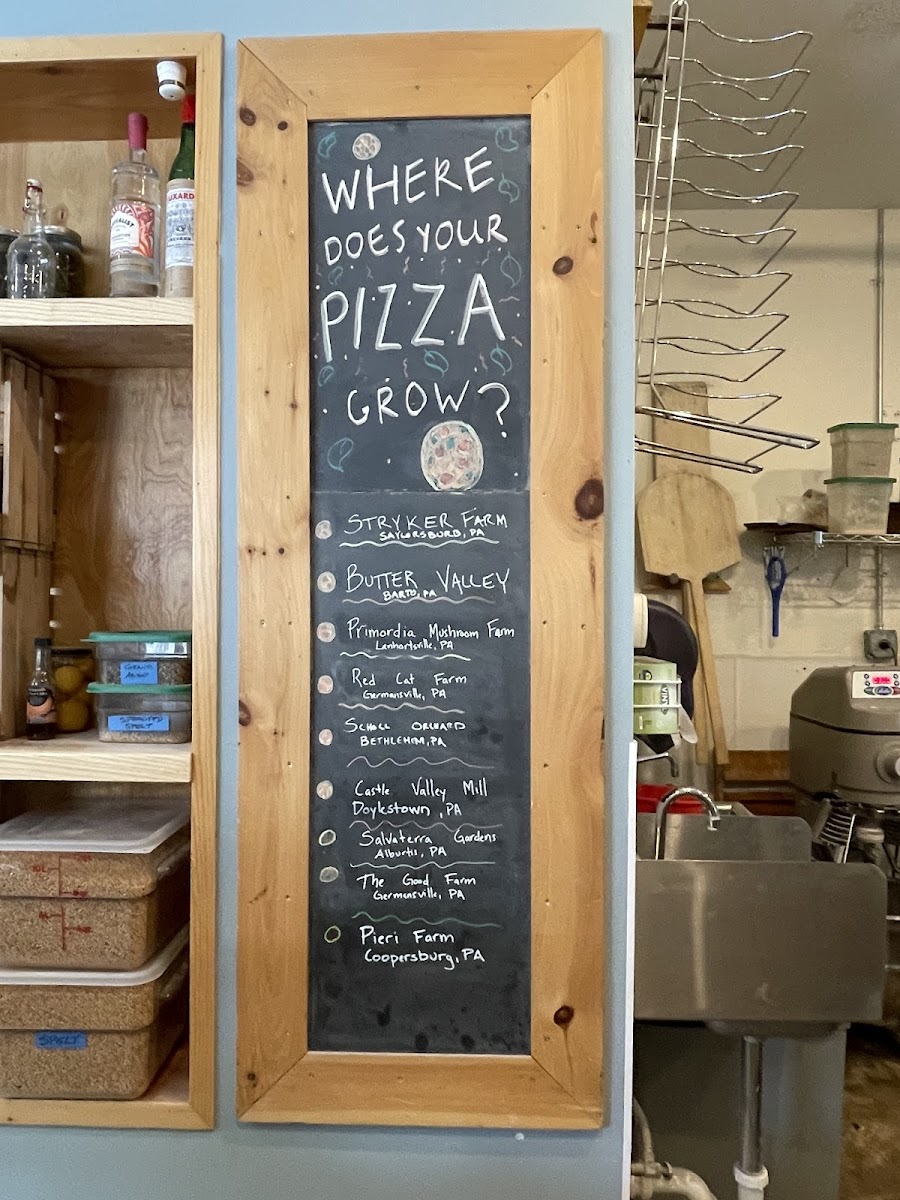 WHERE
DOES YOUR
PIZZA
GROW?
STRYKER FARM
SAYLORSBURB, PA
BUTTER VALLEY
BARTO, PA
Primordia Mushroom Farm
Lenhartsville, PA
Red Cat Farm
Germansville, PA
SCHOLL ORCHARD
BETHLEHEM, PA
Castle Valley Mill
Doylestown, PA
Salvaterra Gardens
Alburtis, PA
The Good Farm
Germansville, PA
Pieri Farm
Coopersburg, PA
SPROUTED
SPELT
SPELT